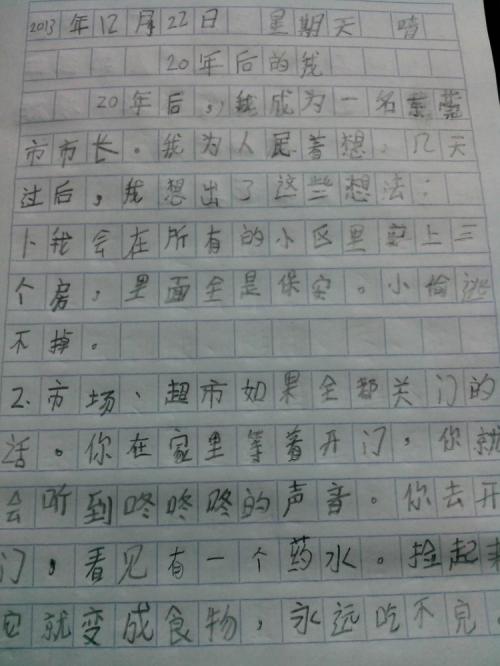 2013年12月22日 星期天 晴
20年后的我
20年后,我成为一名东莞
市市长。我为人民着想,几天
过后,我想出了这些想法:
1、我会在所有的小区里安上三
个房,里面全是保安。小偷逃
不掉。
2.市场、超市如果全都关门的
话。你在家里等着开门,你就
会听到咚咚咚的声音。你去开
门,看见有一个药水。捡起来
它就变成食物,永远吃不完。